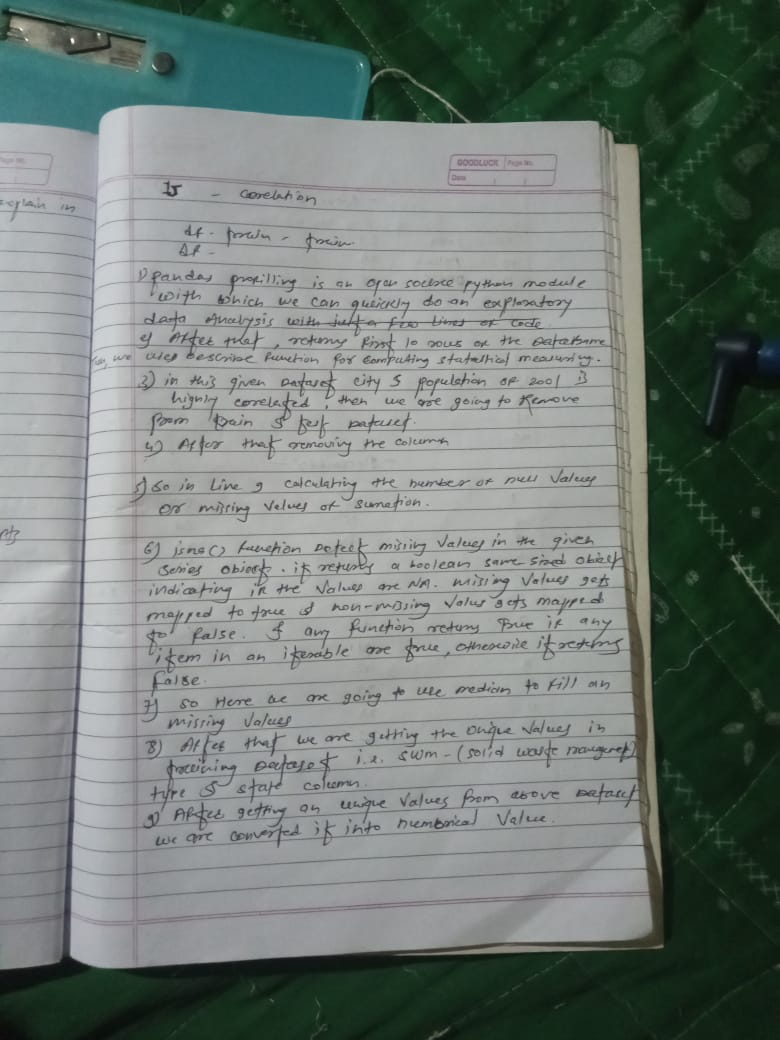 Page No.
explain in
GOODLUCK Page No.
Date
- Corelation
df - train - train
df -
1) pandas profilling is an open source python module
with which we can quickly do an exploratory
data Analysis with just a few lines of code.
2) After that, returns first 10 rows of the Dataframe
Then, we uses describe function for computing statistical measuring.
3) in this given Dataset city & population of 2001 is
highly corelated, then we are going to Remove
from train & test Dataset.
4) After that removing the column
5) So in Line 9 calculating the number of null Values
or missing Values of sumation.
6) isna() function Detect missing Values in the given
series object. it returns a boolean same sized object
indicating if the Values are NA. missing Values gets
mapped to true & non-missing Value gets mapped
to false. & any function returns True if any
item in an iterable are true, otherwise it returns
false.
7) so Here we are going to use median to fill an
missing Values
8) After that we are getting the Unique Values in
Dataset i.e. SWM - (solid waste )
type & state column.
9) After getting an unique Values from above Dataset
we are converted it into numbrical Value.